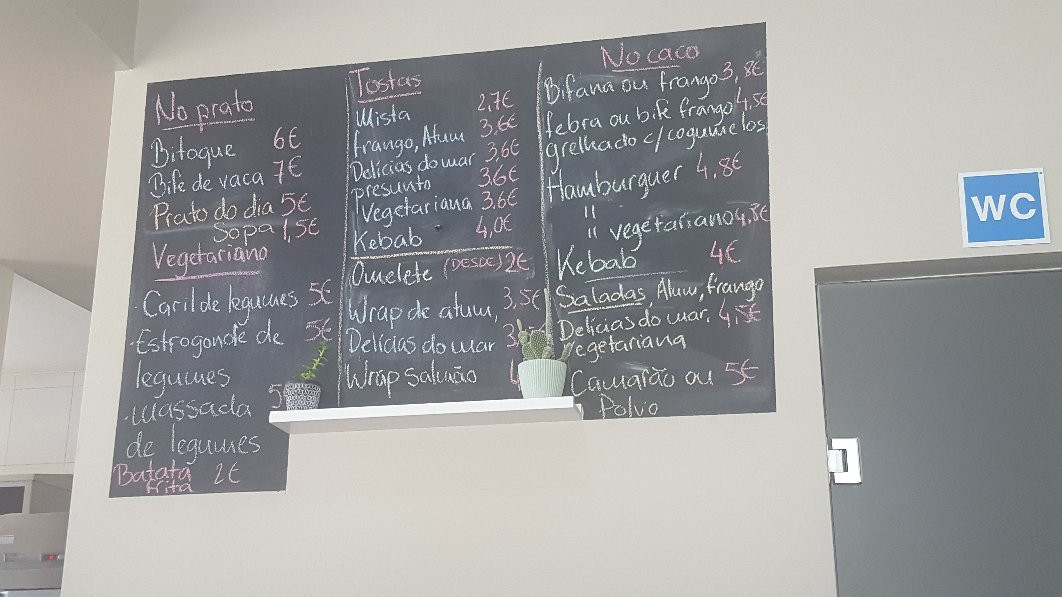 No prato
Bitoque 6€
Bife de vaca 7€
Prato do dia 5€
Sopa 1,5€
Vegetariano
· Caril de legumes 5€
· Estrogonofe de 5€
legumes
· Massada 5
de legumes
Batata 2€
frita
Tostas
Mista 2,7€
frango, Atum 3,6€
Delícias do mar 3,6€
presunto 3,6€
Vegetariana 3,6€
Kebab 4,0€
Omelete (DESDE) 2€
Wrap de atum, 3,5€
Delícias do mar
Wrap Salmão
No caco
Bifana ou frango 3,8€
febra ou bife frango 4,5€
grelhado c/cogumelos
Hamburguer 4,8€
"
" vegetariano 4,8€
Kebab 4€
Saladas, Atum, frango
Delícias do mar, 4,5€
vegetariana
Camarão ou 5€
Polvo
WC